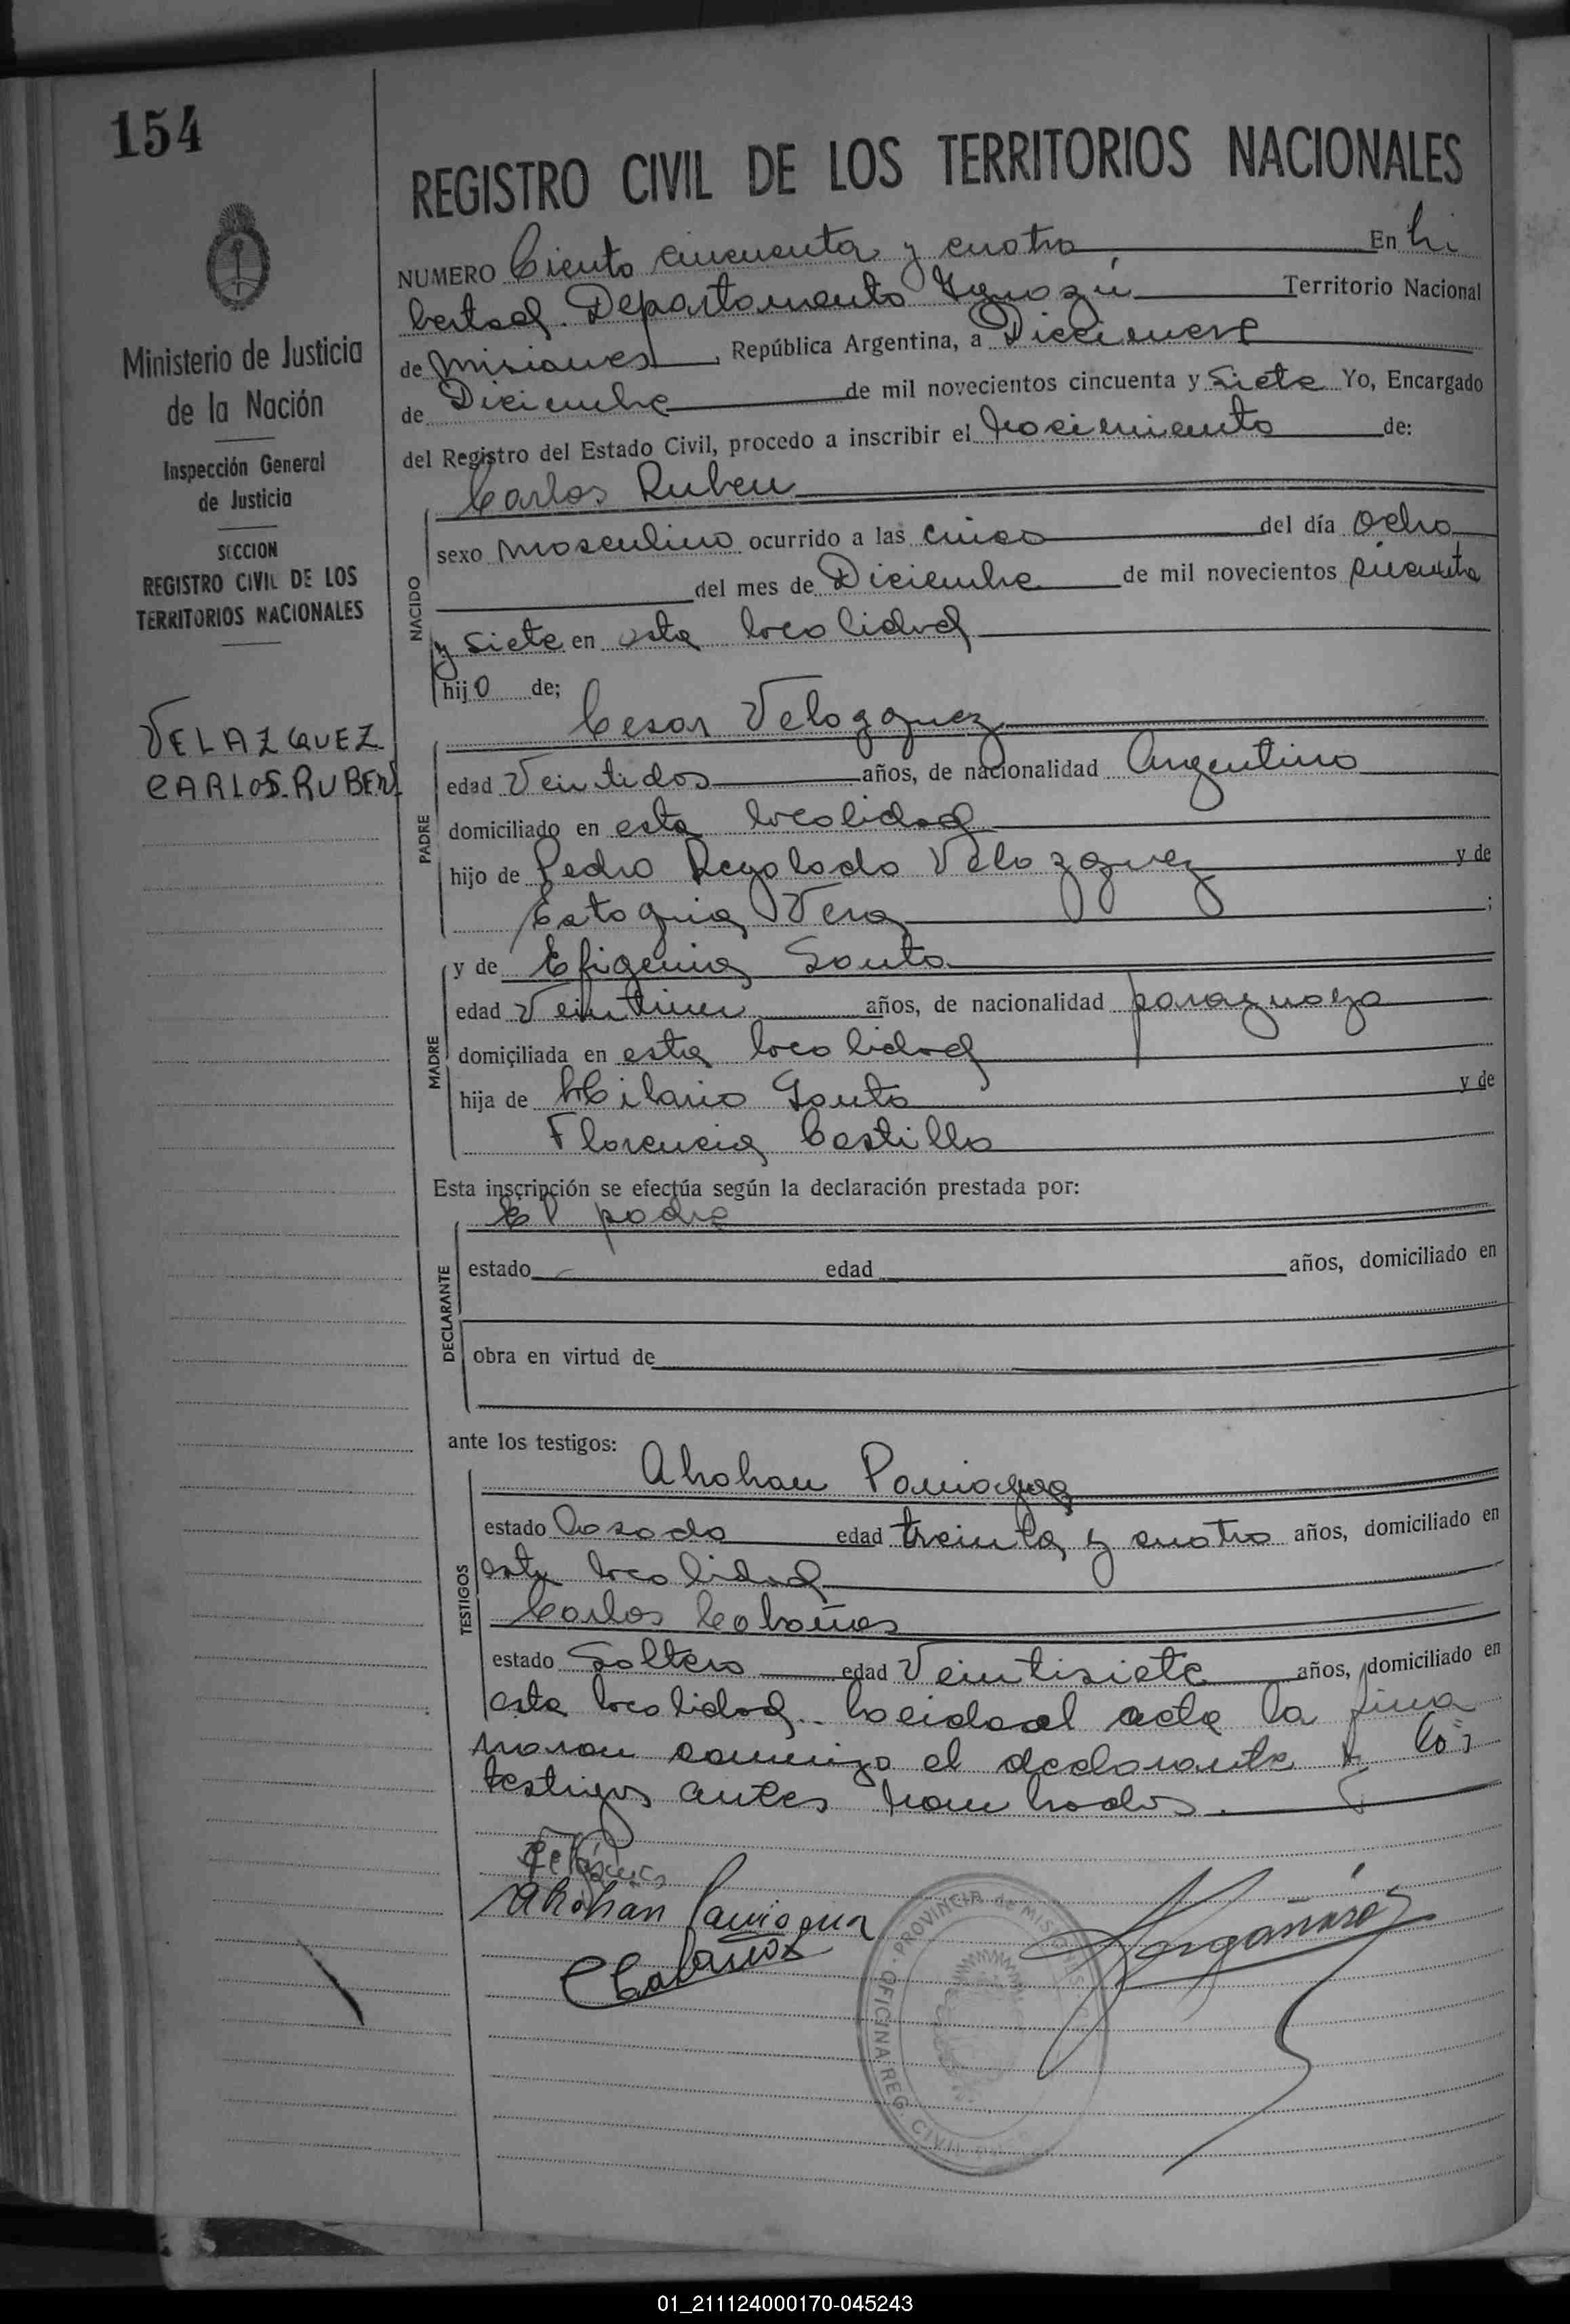 154
REGISTRO CIVIL DE LOS TERRITORIOS NACIONALES
Ministerio de Justicia
de la Nación
Inspección General
de Justicia
SECCION
REGISTRO CIVIL DE LOS
TERRITORIOS NACIONALES
VELAZQUEZ
CARLOS RUBEN
NUMERO Ciento cincuenta y cuatro En Li
bertad. Departamento Iguazú Territorio Nacional
de Misiones, República Argentina, a Diecinueve
de Diciembre de mil novecientos cincuenta y Siete Yo, Encargado
del Registro del Estado Civil, procedo a inscribir el Nacimiento de:
Carlos Ruben
NACIDO
sexo masculino ocurrido a las cinco del día ocho
del mes de Diciembre de mil novecientos cincuenta
y siete en esta localidad
hijo de;
Cesar Velazquez
PADRE
edad Veintidos años, de nacionalidad Argentino
domiciliado en esta localidad
hijo de Pedro Regalado Velazquez y de
Estaquia Vera ;
y de Efigenia Souto
MADRE
edad Veintiun años, de nacionalidad paraguaya
domiciliada en esta localidad
hija de Hilario Souto y de
Florencia Castillo
Esta inscripción se efectúa según la declaración prestada por:
El padre
DECLARANTE
estado edad años, domiciliado en
obra en virtud de
ante los testigos:
Abahan Paniagua
TESTIGOS
estado Casado edad treinta y cuatro años, domiciliado en
esta localidad
Carlos Cabañas
estado Soltero edad Veintisiete años, domiciliado en
esta localidad. Leida el acta la firma
maron conmigo el declarante y los
testigos antes nombrados.
Abahan Paniagua
CCabañas
OFICINA REG. CIVIL PROVINCIA de MISIONES
01_211124000170-045243